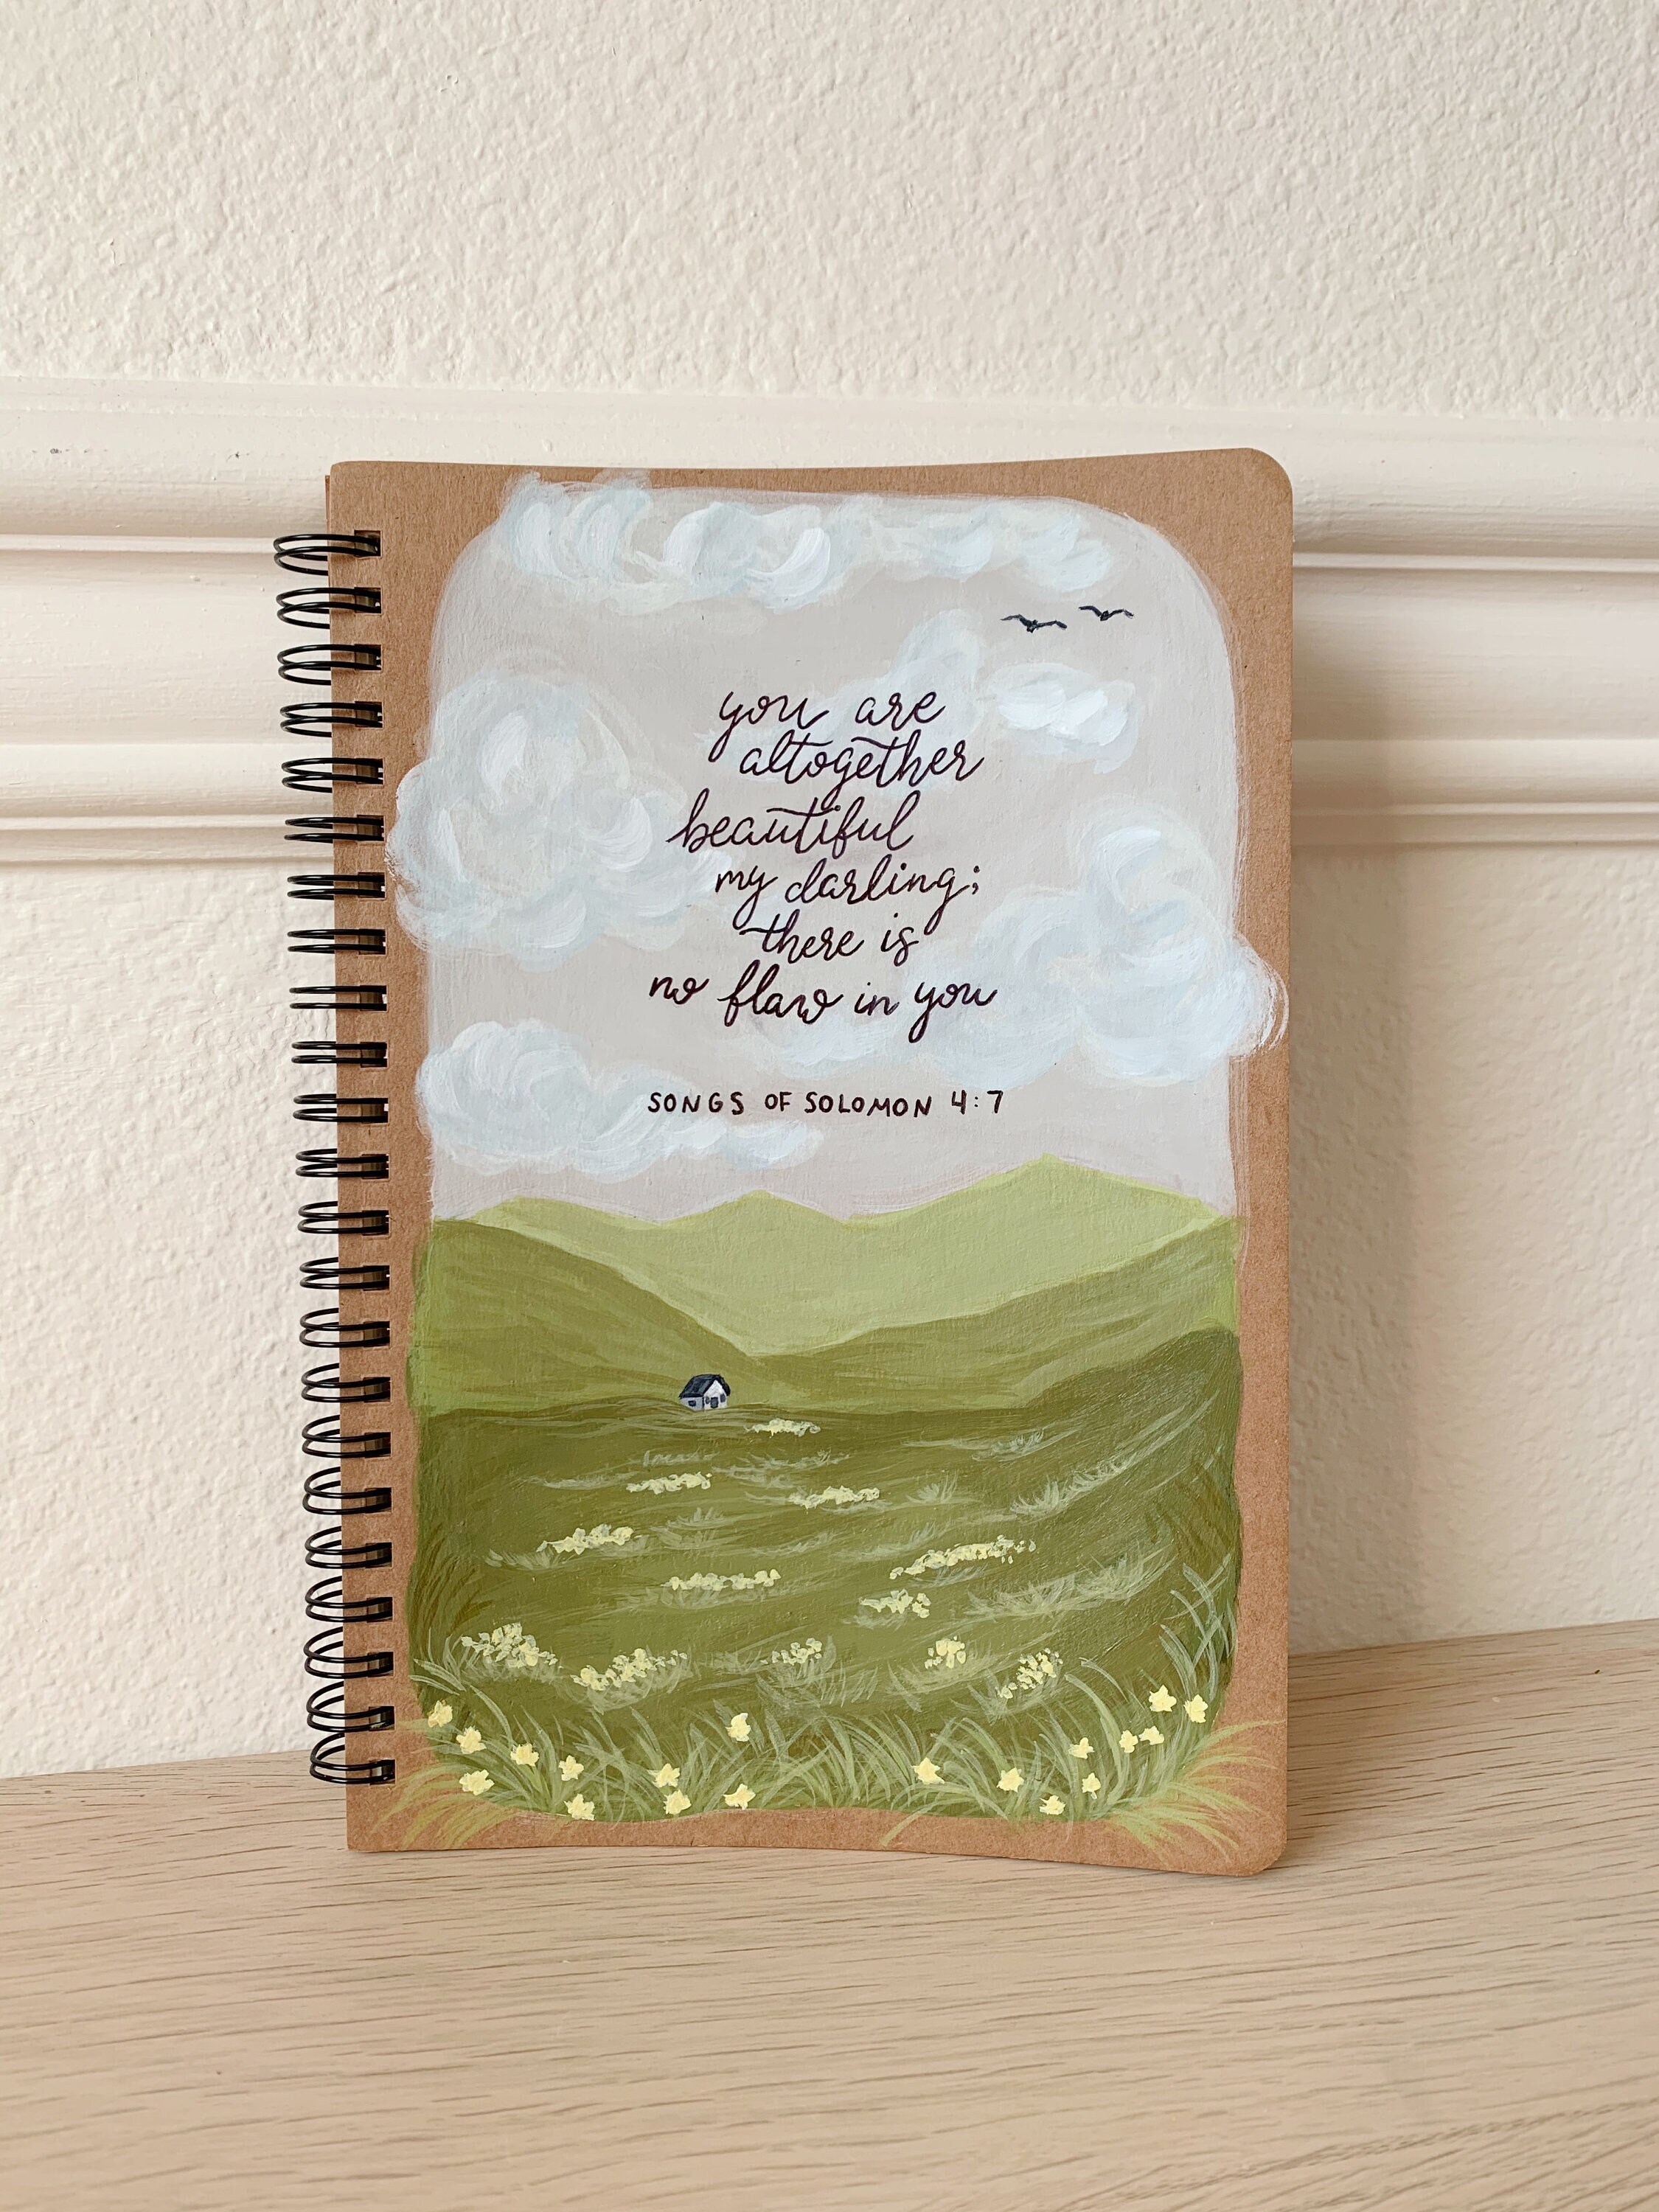 you are
altogether
beautiful
my darling;
there is
no flaw in you
SONGS OF SOLOMON 4:7